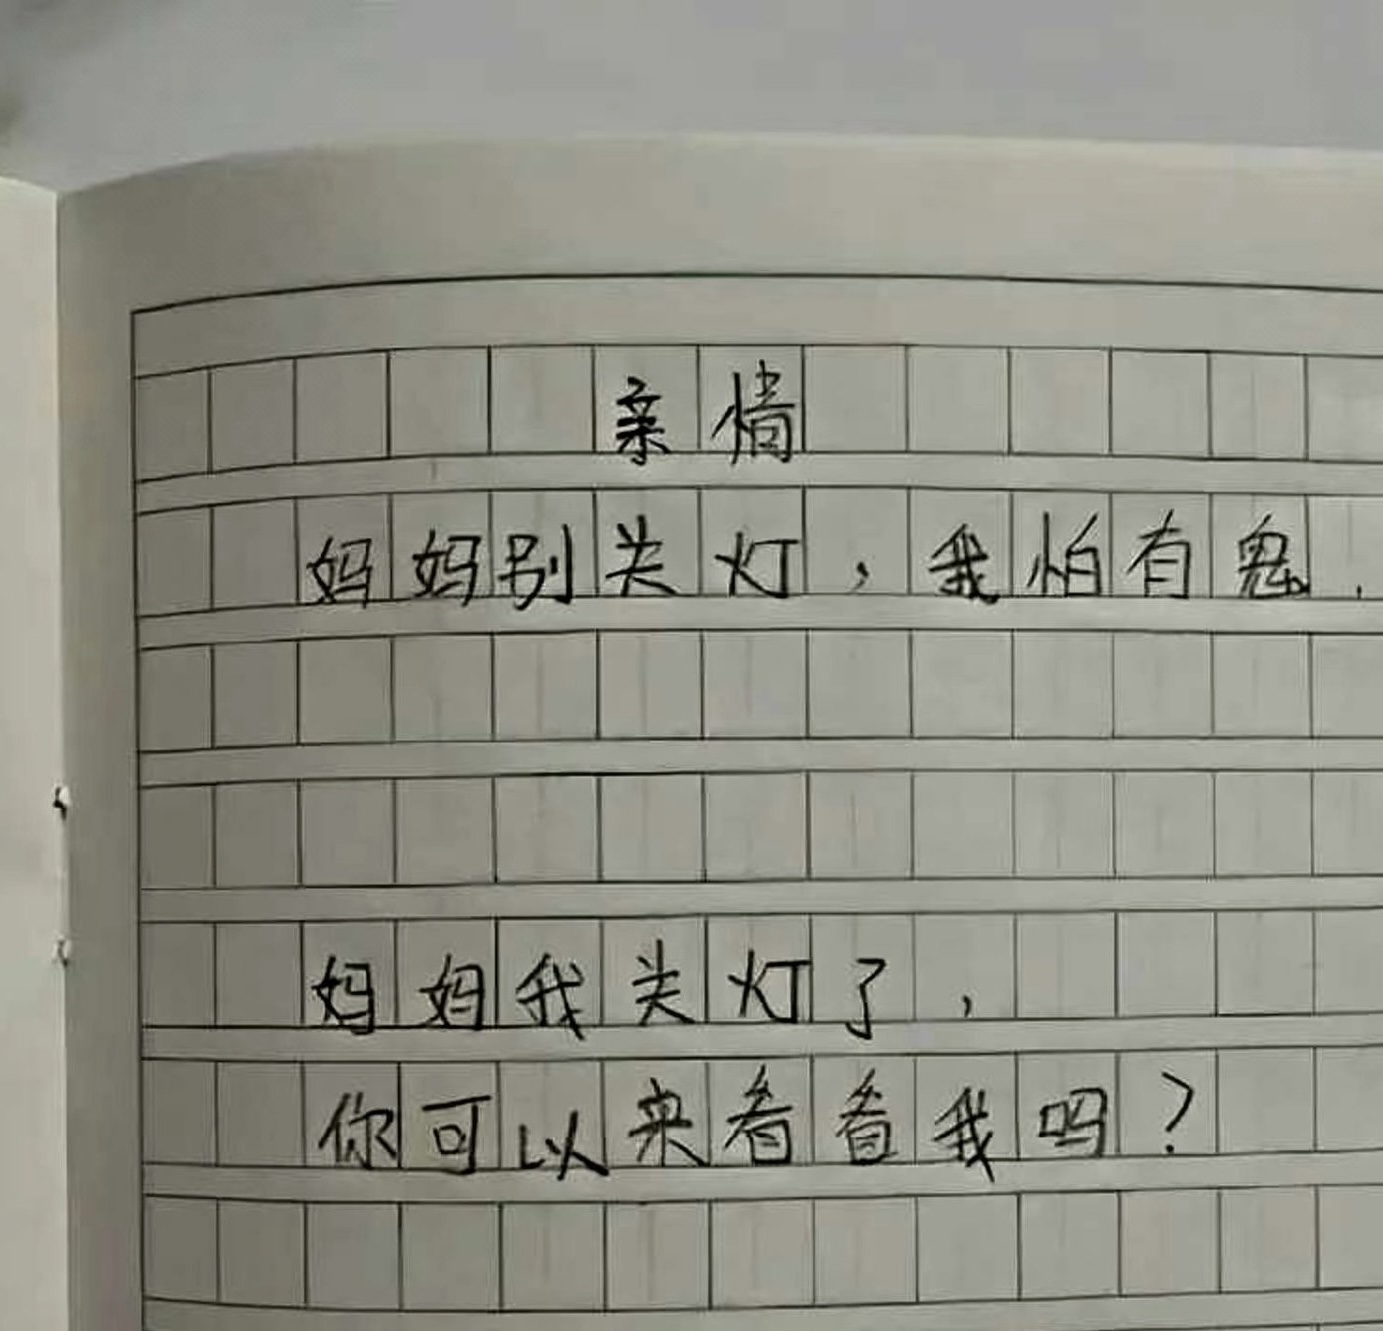 亲情
妈妈别关灯，我怕有鬼.
妈妈我关灯了，
你可以来看看我吗？